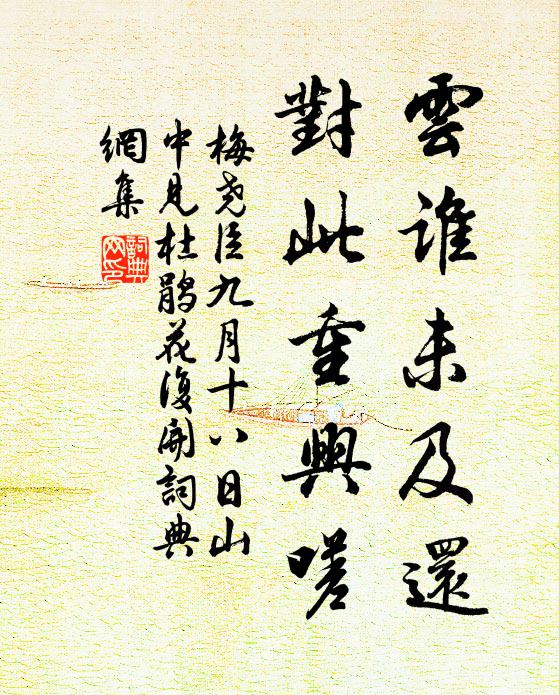 雲誰未及還
對此重興嗟
梅堯臣九月十八日山
中見杜鵑花復開詞典
網集
詞典
网印